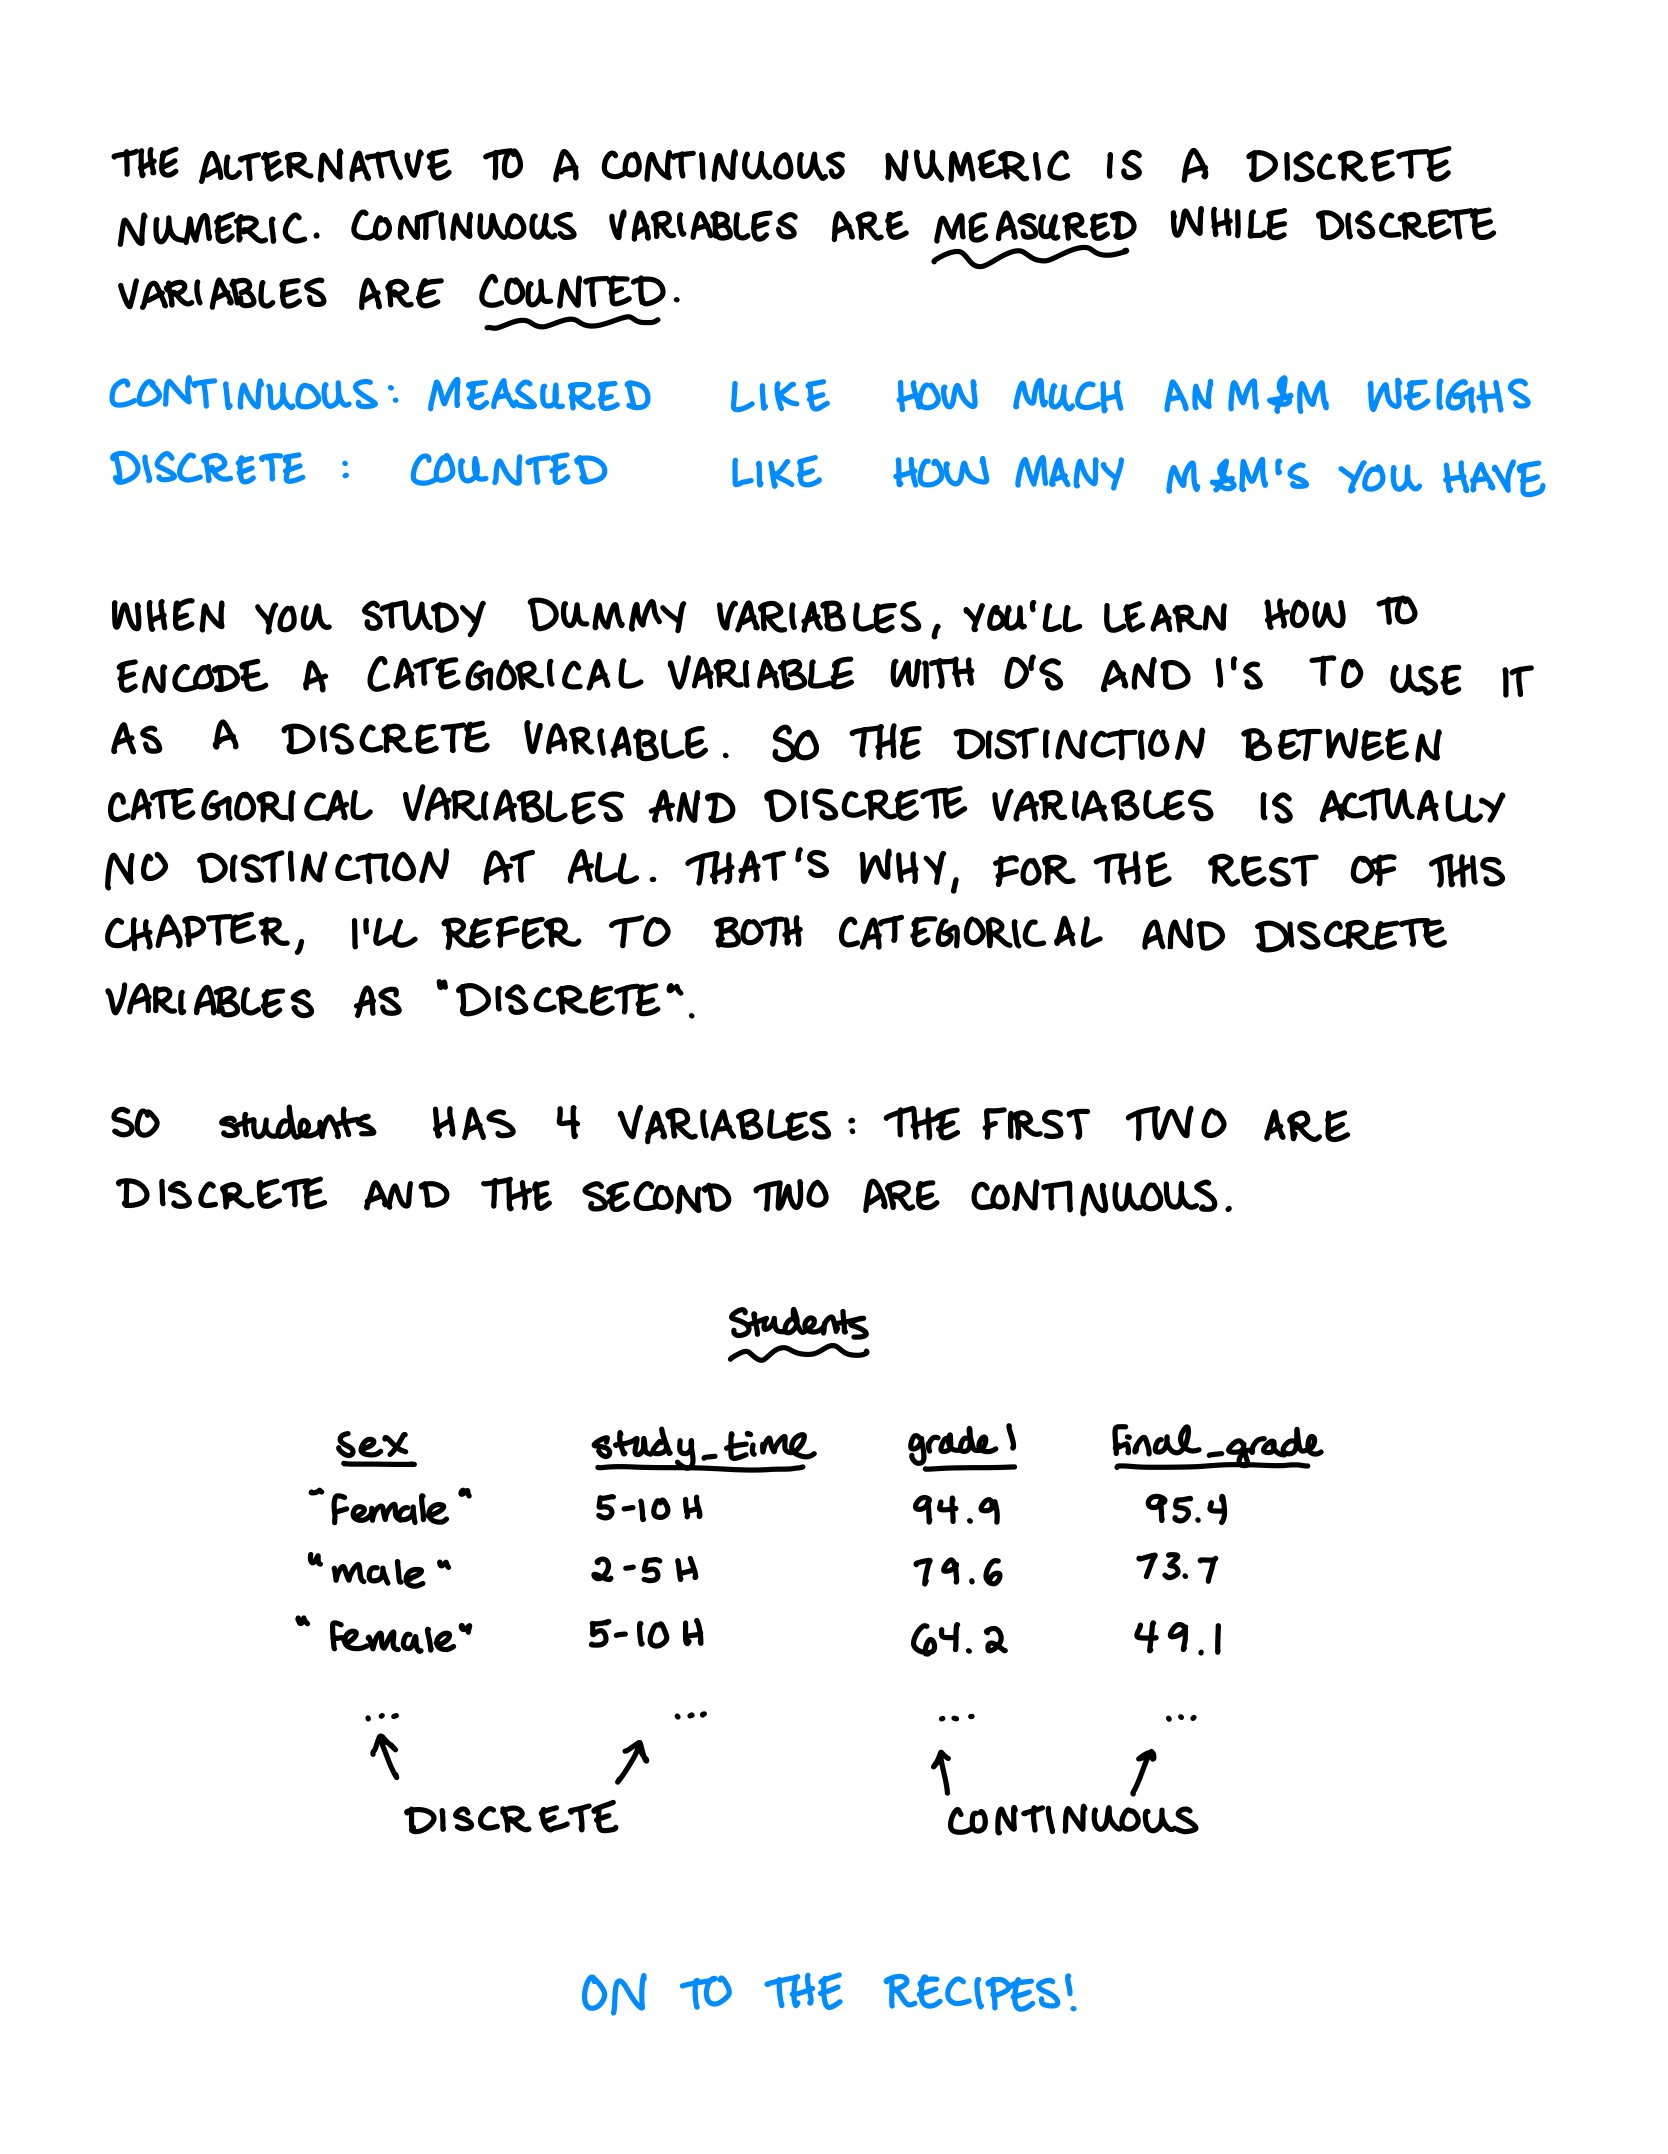 THE ALTERNATIVE TO A CONTINUOUS NUMERIC IS A DISCRETE
NUMERIC. CONTINUOUS VARIABLES ARE MEASURED WHILE DISCRETE
VARIABLES ARE COUNTED.
CONTINUOUS: MEASURED LIKE HOW MUCH AN M&M WEIGHS
DISCRETE: COUNTED LIKE HOW MANY M&M'S YOU HAVE
WHEN YOU STUDY DUMMY VARIABLES, YOU'LL LEARN HOW TO
ENCODE A CATEGORICAL VARIABLE WITH 0'S AND 1'S TO USE IT
AS A DISCRETE VARIABLE. SO THE DISTINCTION BETWEEN
CATEGORICAL VARIABLES AND DISCRETE VARIABLES IS ACTUALLY
NO DISTINCTION AT ALL. THAT'S WHY, FOR THE REST OF THIS
CHAPTER, I'LL REFER TO BOTH CATEGORICAL AND DISCRETE
VARIABLES AS "DISCRETE".
SO students HAS 4 VARIABLES: THE FIRST TWO ARE
DISCRETE AND THE SECOND TWO ARE CONTINUOUS.
Students
sex study_time grade1 final_grade
"female" 5-10 H 94.9 95.4
"male" 2-5 H 79.6 73.7
"female" 5-10 H 64.2 49.1
... ... ... ...
DISCRETE CONTINUOUS
ON TO THE RECIPES!